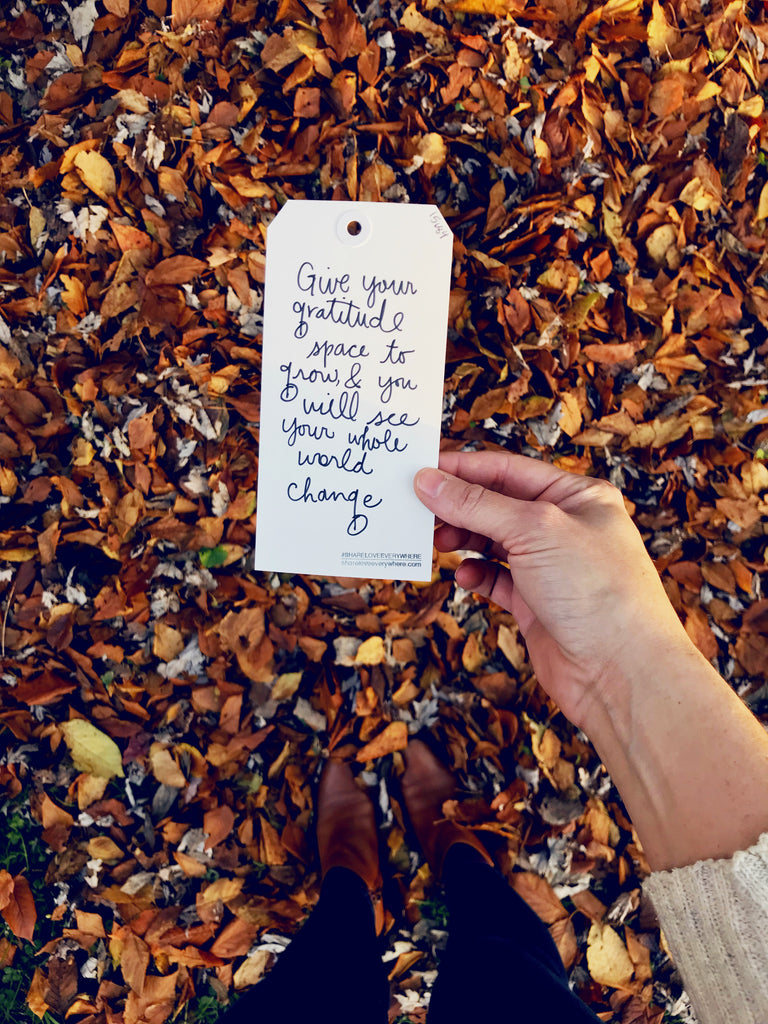 15664
Give your
gratitude
space to
grow & you
will see
your whole
world
change
#SHARELOVEEVERYWHERE
shareloveeverywhere.com